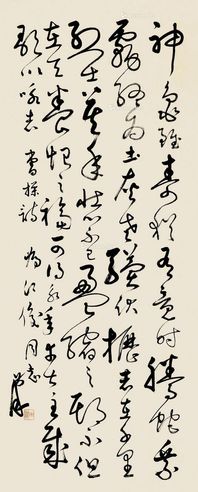 神龜雖壽猶有竟時騰蛇乘
霧終為土灰老驥伏櫪志在千里
烈士暮年壯心不已盈縮之期不但
在天養怡之福可得永年幸甚至哉
歌以詠志 曹操詩 為江俊同志